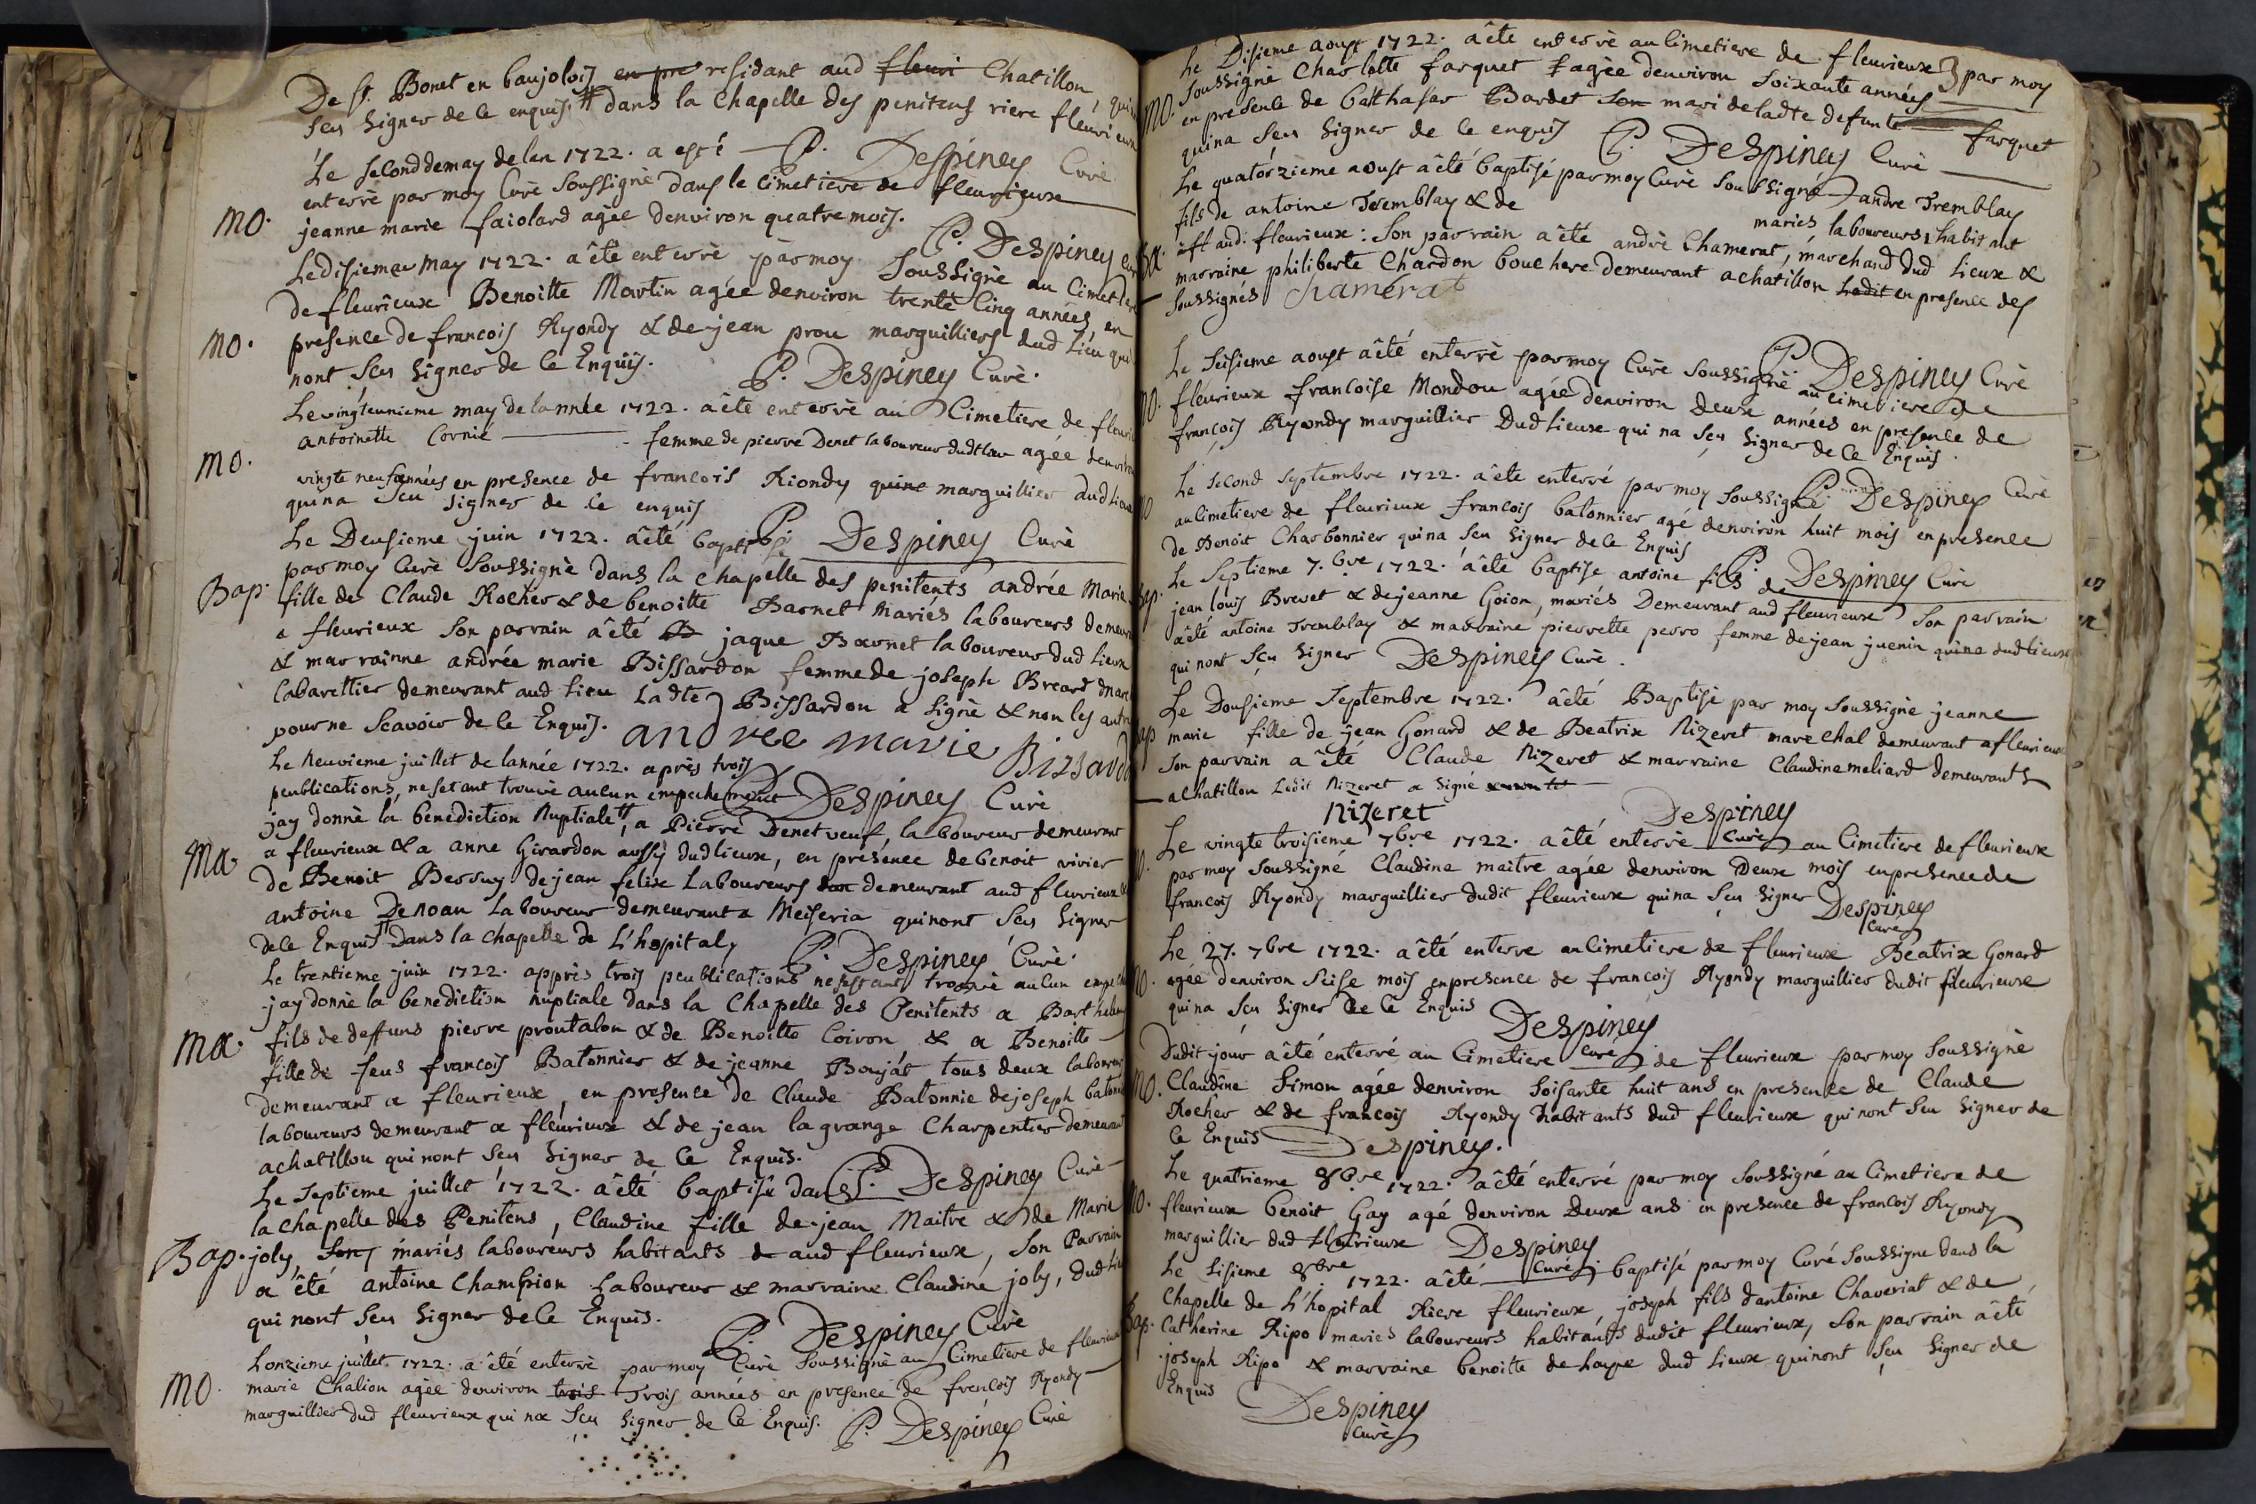 De st. Bonet en baujolois en pre residant aud fleuri Chatillon qui
sçu signer de ce enquis # dans la chapelle des penitens riere fleurieux
P. Despiney Curé
Le second de may de lan 1722. a esté
enterré par moy Curé soussigné dans le cimetiere de fleurieux
MO. jeanne marie faiolard agée denviron quatre mois.
P. Despiney Curé
Le disieme may 1722. a été enterré par moy soussigné au Cimetiere
de fleurieux Benoitte Martin agée denviron trente cinq années, en
MO. presence de francois Ryondy & de jean prou marguilliers dud lieu qui
nont sçu signer de ce Enquis.
P. Despiney Curé.
Le vingteunieme may de lannée 1722. a été enterré au Cimetiere de fleurieux
MO. antoinette Cornié femme de pierre Denet laboureur dudt lieu agée denviron
vingte neuf années en presence de francois Riondy quine marguillier dud lieux
qui na sçu signer de ce enquis
P. Despiney Curé
Le Deusieme juin 1722. a été baptisé
par moy Curé soussigné dans la chapelle des penitents andrée Marie
Bap. fille de Claude Rocher & de benoitte Barnet Mariés laboureurs demeurant
a fleurieux son parrain a été jaque Barnet laboureur dud lieux
& marrainne andrée marie Bissardon femme de joseph Breard
Cabarettier demeurant aud lieu Ladte Bissardon a signé & non les autres
pour ne scavoir de ce Enquis. andree marie Bissardon
Le neuvieme juillet de lannée 1722. après trois
P. Despiney Curé
peublications, ne setant trouvé aucun empechement
jay donné la benediction Nuptiale #, a Pierre Denet veuf, laboureur demeurant
MA a fleurieux & a anne Girardon aussy dud lieux, en présence de benoit vivier
de Benoit Bessuy de jean felix Laboureurs demeurant aud fleurieux &
antoine Denoan Laboureur demeurant a Meiseria qui nont sçu signer
de ce Enquis # dans la chapelle de L'hopital,
P. Despiney Curé.
Le trentieme juin 1722. apprès trois peublications ne setant trouvé aucun empeche
jay donné la benediction nuptiale dans la Chapelle des Penitents a Barthelemy
MA. fils de deffuns pierre proutalon & de Benoitte Coiron & a Benoitte
fille de feus francois Batonnier & de jeanne Boujat tous deux laboureurs
demeurant a fleurieux, en presence de Claude Batonnie de joseph batonnie
laboureurs demeurant a fleurieux & de jean lagrange Charpentier demeurant
a chatillon qui nont sçu signer de ce Enquis.
P. Despiney Curé
Le Septieme juillet 1722. a été baptisé dans
la chapelle des Penitens, Claudine fille de jean Maitre & de Marie
Bap. joly, mariés laboureurs habitants aud fleurieux, son Parrain
a été antoine Champion Laboureur & marraine Claudine joly, dud Lieu
qui nont sçu signer de ce Enquis.
P. Despiney Curé
Lonzieme juillet 1722. a été enterré par moy Curé soussigné au Cimetiere de fleurieux
MO. marie Chalion agée denviron trois Trois années en presence de francois Ryondy
marguillier dud fleurieux qui na sçu signer de ce Enquis. P. Despiney Curé
Le Disieme aoust 1722. a été enterré au cimetiere de fleurieux par moy
MO. soussigné Charlotte farquet agée denviron soixante années
en presence de balthasar Bordet son mari de ladte defunte farquet
qui na sçu signer de ce enquis P. Despiney Curé
Le quatorzieme aoust a été baptisé par moy Curé soussigné andre Tremblay
fils de antoine Tremblay & de mariés laboureurs habitant
Ba. aud. fleurieux: son parrain a été andré Chamerat, marchand dud Lieux &
marraine philiberte Chardon bouchere demeurant a chatillon Ledit en presence des
soussignés chamerat
P. Despiney Curé
Le seisieme aoust a été enterré par moy Curé soussigné au cimetiere de
MO. fleurieux francoise Mondou agée denviron Deux années en presence de
françois Ryondy marguillier Dud lieux qui na sçu signer de ce Enquis.
P. Despiney Curé
Le second septembre 1722. a été enterré par moy soussigné
MO au cimetiere de fleurieux francois batonnier agé denviron huit mois en presence
de Benoit Charbonnier qui na sçu signer de ce Enquis
P. Despiney Curé
Le Septieme 7.bre 1722. a été baptise antoine fils de
Bap. jean louis Brevet & de jeanne Goion, mariés Demeurant aud fleurieux son parrain
a été antoine Tremblay & marraine pierrette perro femme de jean juenin quine dud lieux
qui nont sçu signer Despiney Curé.
Le Dousieme Septembre 1722. a été Baptisé par moy soussigné jeanne
Bap marie fille de jean Gonard & de Beatrix Nizeret marechal demeurant a fleurieux
son parrain a été Claude Nizeret & marraine Claudine meliard demeurants
a chatillon Ledit Nizeret a signé
Nizeret Despiney Curé
Le vingte troisieme 7bre 1722. a été enterré au Cimetiere de fleurieux
MO. par moy soussigné Claudine maitre agée denviron Deux mois en presence de
francois Ryondy marguillier dudit fleurieux qui na sçu signer Despiney Curé
Le 27. 7bre 1722. a été enterre au cimetiere de fleurieux Beatrix Gonard
MO. agée denviron seise mois en presence de francois Ryondy marguillier dudit fleurieux
qui na sçu signer de ce Enquis Despiney Curé
Dudit jour a été enterré au Cimetiere de fleurieux par moy soussigné
MO. Claudine Simon agée denviron soisante huit ans en presence de Claude
Rocher & de francois Ryondy habitants dud fleurieux qui nont sçu signer de
ce Enquis Despiney.
Le quatrieme 8bre 1722. a été enterré par moy soussigné au Cimetiere de
MO. fleurieux benoit Gay agé denviron Deux ans en presence de francois Ryondy
marguillier dud fleurieux Despiney Curé
Le Sisieme 8bre 1722. a été baptisé par moy Curé soussigne dans la
Chapelle de L'hopital Riere fleurieux, joseph fils dantoine Chaveriat & de
Bap. Catherine Ripo mariés laboureurs habitants dudit fleurieux, son parrain a été
joseph Ripo & marraine benoitte de haye dud Lieux qui nont sçu signer de
Enquis
Despiney
Curé